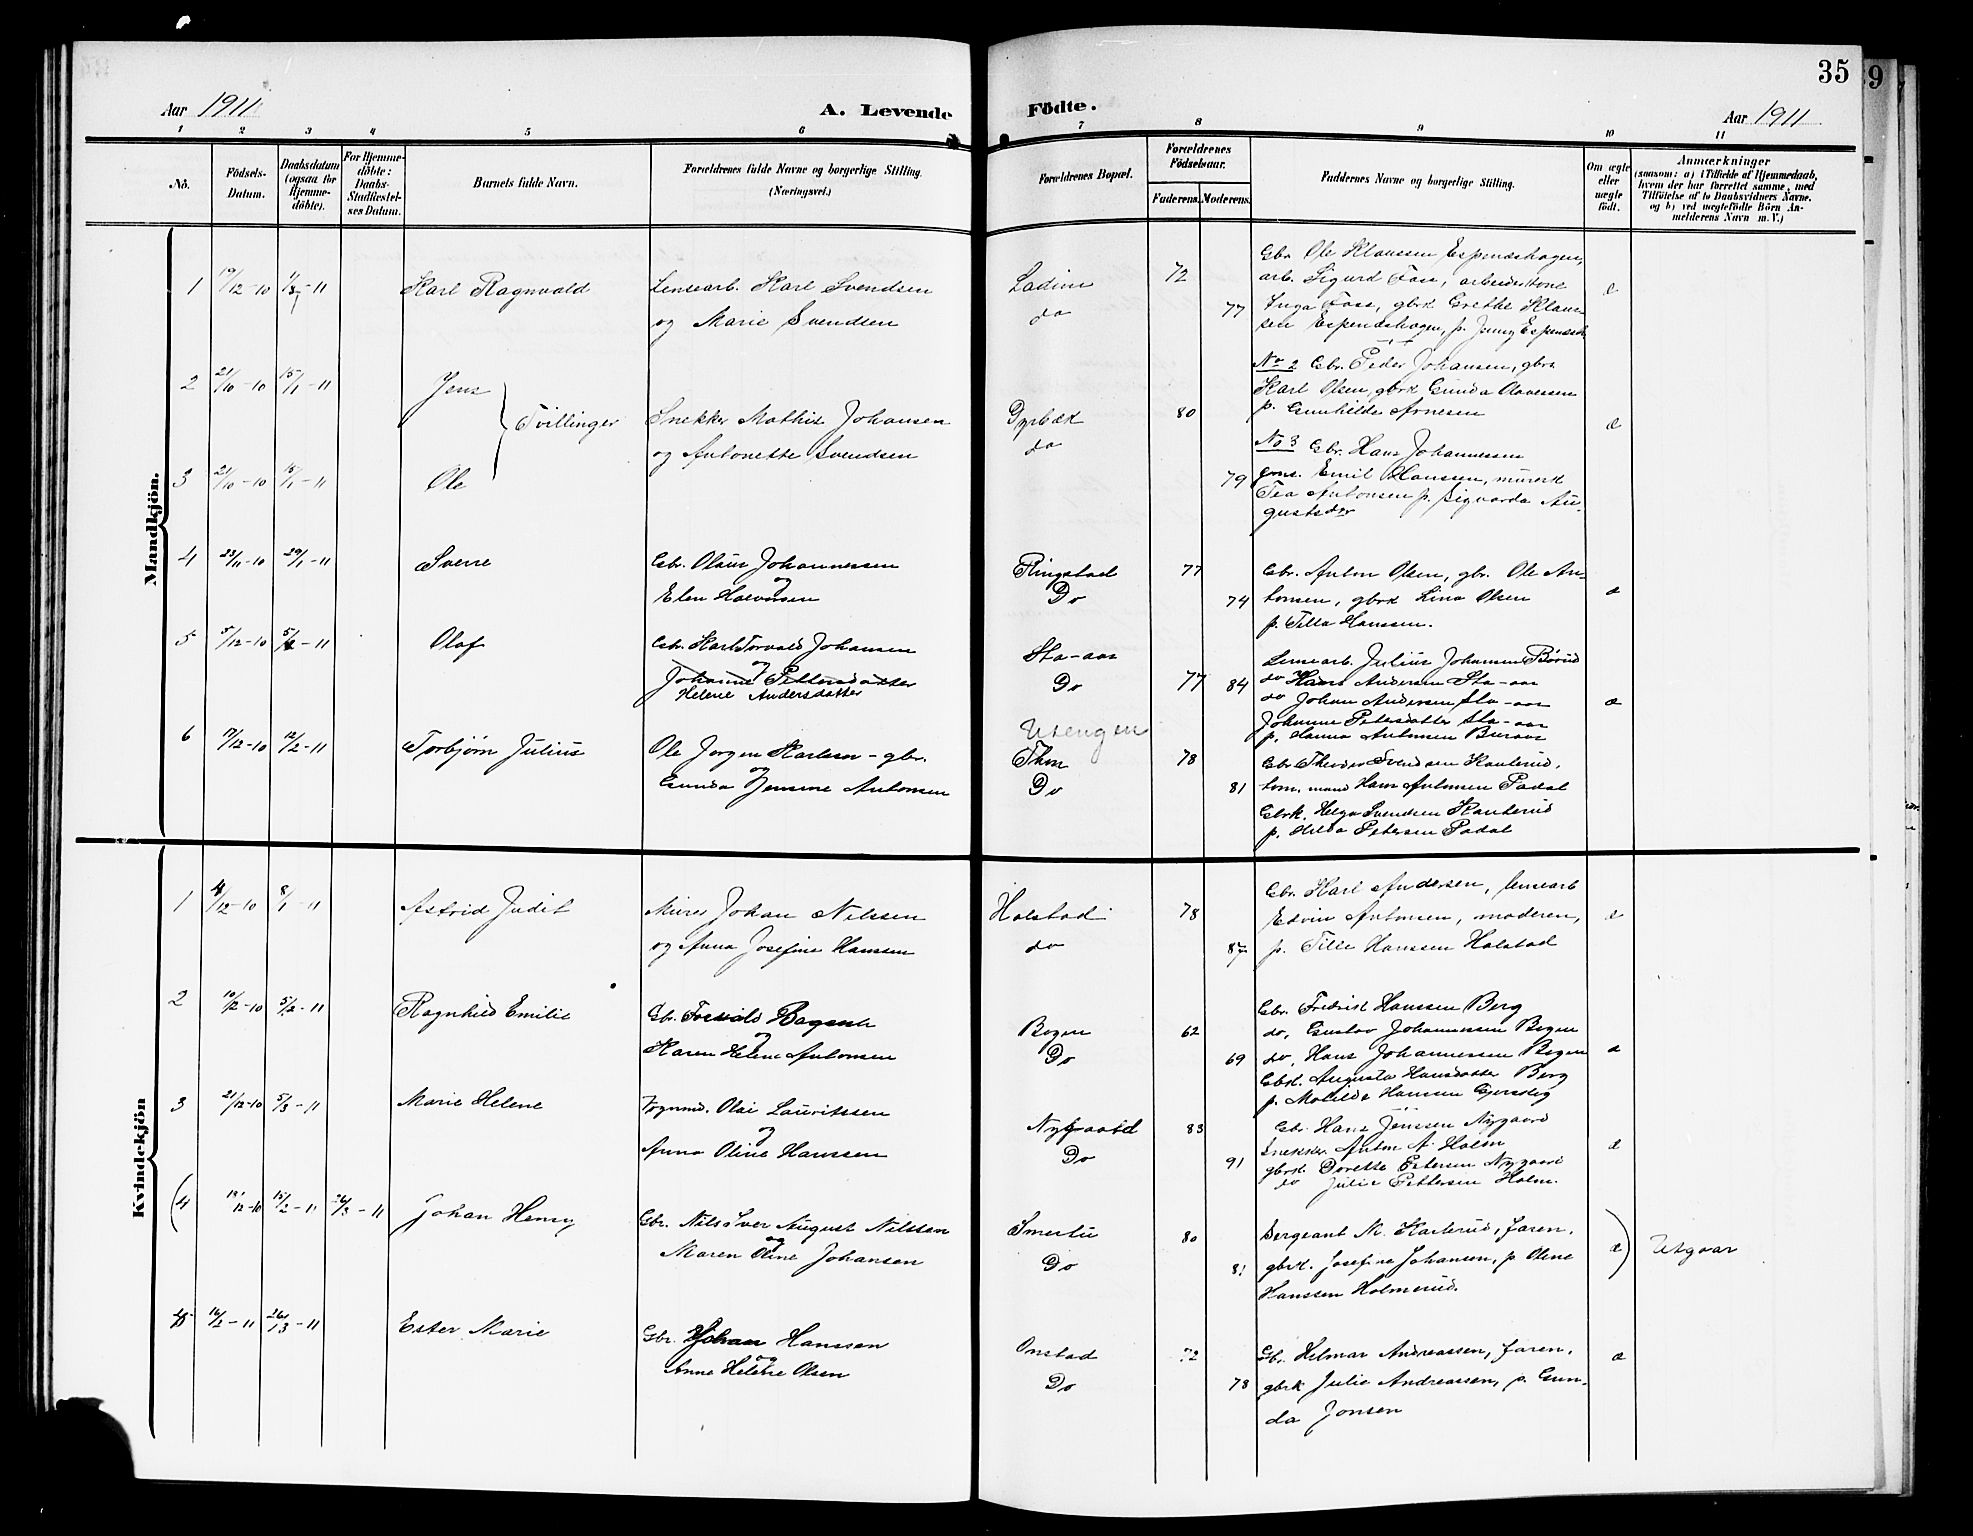 35
9
Aar 1911
A. Levende Fødte.
Aar 1911
1 2 3 4 5 6 7 8 9 10 11
No.
Födsels-Datum.
Daabsdatum (ogsaa for Hjemme-döbte).
For Hjemme-döbte: Daabs-Stadfæstel-ses Datum.
Barnets fulde Navn.
Forældrenes fulde Navne og borgerlige Stilling. (Næringsvei.)
Forældrenes Bopæl.
Forældrenes Födselsaar.
Faderens.
Moderens.
Faddernes Navne og borgerlige Stilling.
Om ægte eller uægte födt.
Anmærkninger
(saasom: a) i Tilfælde af Hjemmedaab, hvem der har forrettet samme, med Tilföielse af to Daabsvidners Navne. og b) ved uægtefödte Börn An-melderens Navn m. V.)
Mandkjön.
1 19/12-10 -11 Karl Ragnvald
Lensearb. Karl Svendsen
og Marie Svendsen
Ladim
do
72
77
Gbr Ole Klaussen Espenæshagen,
arb. Sigurd Foss, arbeiderkone
Inga Foss, gbrk Grethe Klaus-
sen Espenæshagen, p. Jenny Espenæsh.
æ
2 21/10-10 15/1-11 Jens
Tvillinger
3 21/10-10 15/1-11 Ole
Snekker Mathis Johansen
og Antonette Svendsen
Gyrbæk
do
80
79
No 2 Gbr. Peder Johansen, gbr
Karl Olsen, gbrk Gunda Olavesen
p. Gunhilde Arnesen
No 3 Gbr. Hans Johannessen
Emil Hanssen, murerk
Tea Antonsen p. Sigvarda Au-
gustsdtr
æ
4 23/11-10 29/1-11 Sverre
Gbr. Olaus Johannessen
og
Elen Halvorsen
Ringstad
Do
77
74
Gbr. Anton Olsen, gbr. Ole An-
tonsen, gbrk Lina Olsen
p. Tilla Hanssen.
æ
5 5/12-10 -11 Olaf
Gbr. Karl Torvald Johansen
og
Johanne Pettersdatter
Helene Andersdatter
Sta-aas
Do
77
84
Lensearb. Julius Johansen Börud
do Hans Andersen Sta-aas
do Johan Andersen Sta-aas
Johanne Petersdatter Sta-aas
p. Hanna Antonsen Buraas
æ
6 17/12-10 12/2-11 Torbjørn Julius
Ole Jørgen Karlsen - gbr.
og
Gunda Jensine Antonsen
Utengen
Thon
Do
78
81
Gbr. Theodor Svendsen Kanterud,
tom. mand Hans Antonsen Padal
Gbrk. Helga Svendsen Kanterud
p. Hilda Petersen Padal
Kvindekjön
1 /12-10 8/1-11 Astrid Judit
Murer Johan Nilssen
og Anna Josefine Hanssen
Holstad
do
78
87
Gbr. Karl Andersen, lensearb
Edvin Antonsen, moderen,
p. Tilla Hanssen Holstad
æ
2 10/12-10 5/2-11 Ragnhild Emilie
Gbr. Torvald Bagesen
og
Karen Helene Antonsen
Bogen
Do
62
69
Gbr. Fredrik Hanssen Berg
do, Gustav Johannessen Bogen
do, Hans Johannessen Bogen
Gbrk. Augusta Hansdatter Berg
p. Matilde Hanssen Gjersteg
æ
3 21/12-10 5/3-11 Marie Helene
Vognmd. Olai Lauritssen
og
Anna Oline Hanssen
Nygaard
Do
83
91
Gbr. Hans Jenssen Nygaard
Snekker. Anton A. Holm
gbrk. Dorette Petersen Nygaard
do Julie Pettersen Holm.
æ
(4 19/12-10 15/2-11 26/3-11 Johan Henry
Gbr. Nils Iver August Nilssen
og
Maren Oline Johansen
Smertu
Do
80
81
Sergeant M. Karterud, faren,
gbrk. Josefine Johansen, p Olene
Hanssen Holmerud.
æ) Utgaar
16/2-11 26/3-11 Ester Marie
Gbr. Johan Hanssen
og
Anne Helene Olsen
Onstad
Do
72
78
Gbr. Hilmar Andreassen, faren,
gbrk Julie Andreassen, p. Gun-
da Jonsen
æ